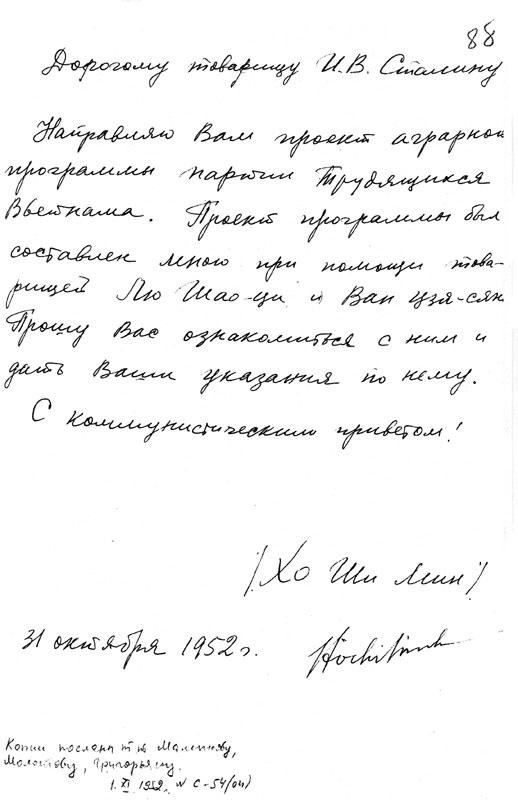 88
Дорогому товарищу И.В. Сталину
Направляю Вам проект аграрной
программы партии Трудящихся
Вьетнама. Проект программы был
составлен мною при помощи това-
рищей Лю Шао-ци и Ван Цзя-сян
Прошу Вас ознакомиться с ним и
дать Ваши указания по нему.
С коммунистическим приветом!
/Хо Ши Мин/
31 октября 1952 г. Hochiminh
Копии посланы т.т. Маленкову,
Молотову, Григорьяну.
1.XI.1952. N С-54(04)